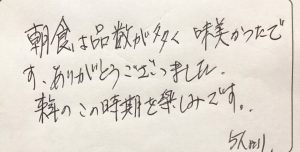 朝食は品数が多く 味美かったで
す、ありがとうございました.
この時期を楽しみです。.